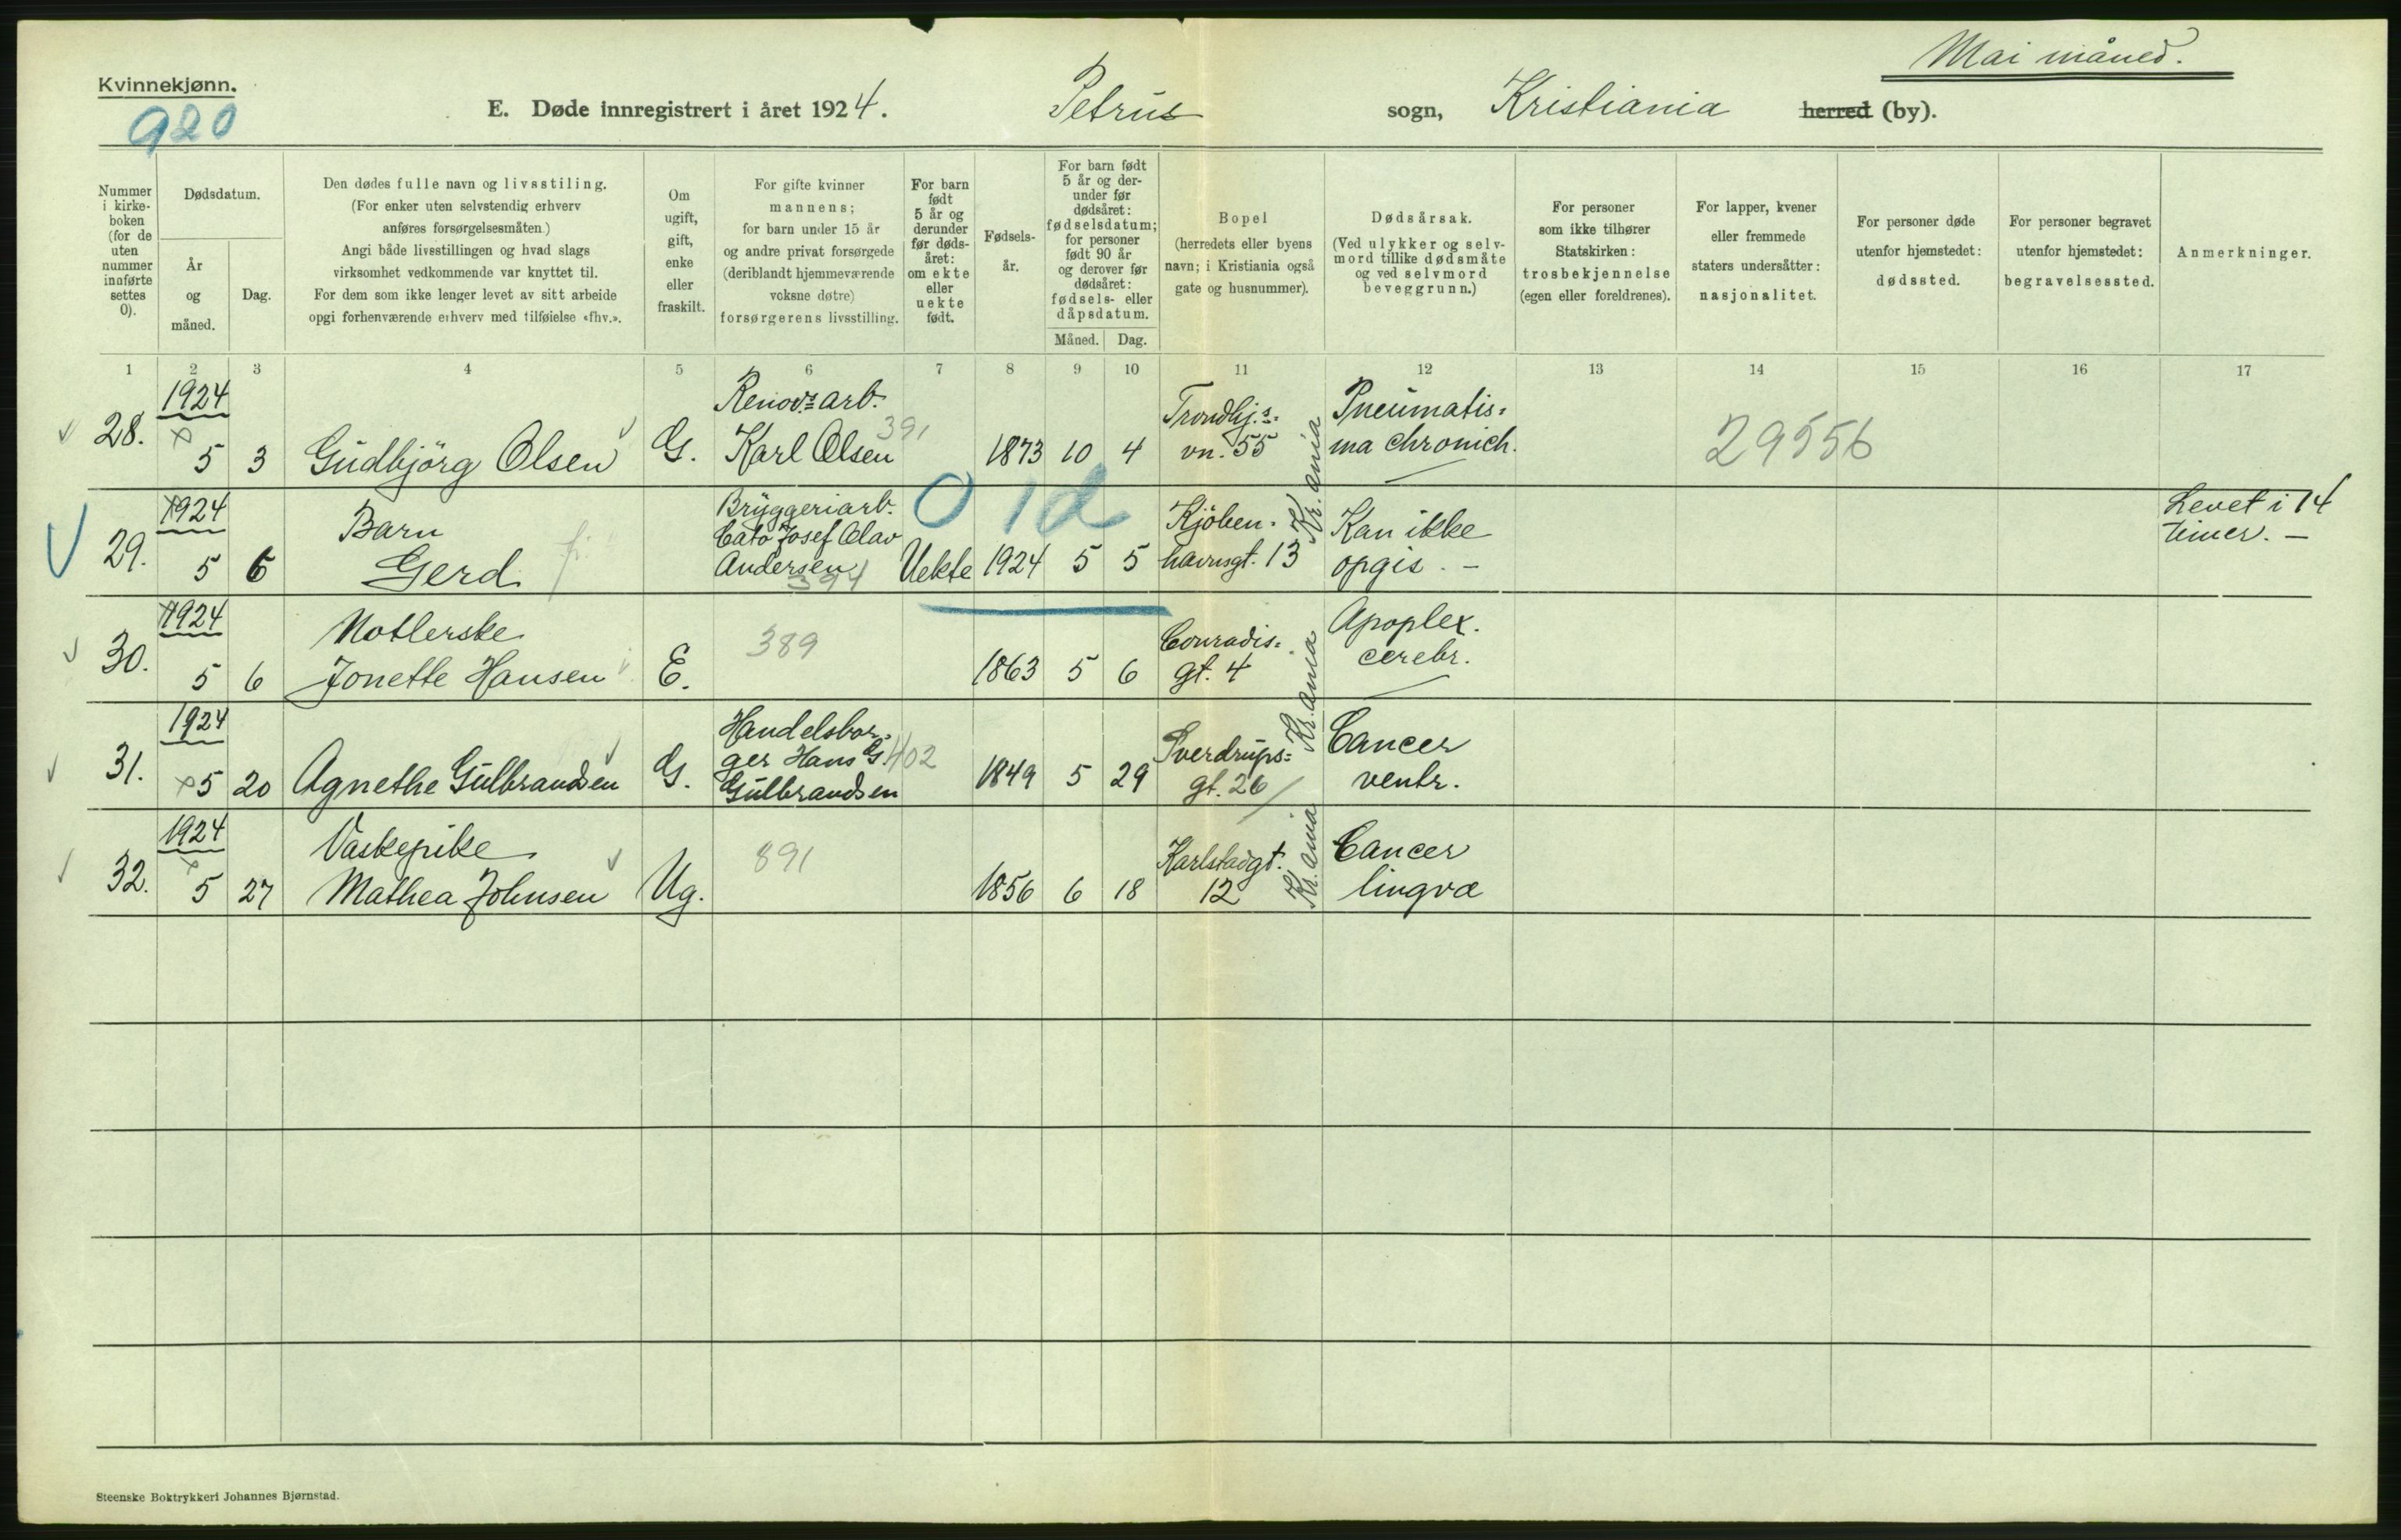 Mai måned.
Kvinnekjønn.
920
E. Døde innregistrert i året 1924. Petrus sogn, Kristiania herred (by).
Nummer i kirke-boken (for de uten nummer innførte settes 0).
Dødsdatum.
År og måned.
Dag.
Den dødes fulle navn og livsstiling.
(For enker uten selvstendig erhverv
anføres forsørgelsesmåten.)
Angi både livsstillingen og hvad slags
virksomhet vedkommende var knyttet til.
For dem som ikke lenger levet av sitt arbeide
opgi forhenværende erhverv med tilføielse «fhv.».
Om ugift, gift, enke eller fraskilt.
For gifte kvinner
mannens;
for barn under 15 år
og andre privat forsørgede
(deriblandt hjemmeværende
voksne døtre)
forsørgerens livsstilling.
For barn født 5 år og derunder før døds-året: om ekte eller uekte født.
Fødsels-år.
For barn født
5 år og der-
under før
dødsåret:
fødselsdatum;
for personer
født 90 år
og derover før
dødsåret:
fødsels- eller
dåpsdatum.
Måned. Dag.
Bopel
(herredets eller byens
navn; i Kristiania også
gate og husnummer).
Dødsårsak.
(Ved ulykker og selv-
mord tillike dødsmåte
og ved selvmord
beveggrunn.)
For personer
som ikke tilhører
Statskirken:
trosbekjennelse
(egen eller foreldrenes).
For lapper, kvener
eller fremmede
staters undersåtter:
nasjonalitet.
For personer døde
utenfor hjemstedet:
dødssted.
For personer begravet
utenfor hjemstedet:
begravelsessted.
Anmerkninger.
1 2 3 4 5 6 7 8 9 10 11 12 13 14 15 16 17
1924 Renovs. arb. Trondhj.s= Pneumatis=
28. 5 3 Gudbjörg Olsen G. Karl Olsen 391 1873 10 4 vn. 55 Kr.ania ma chronich. 29556
1924 Barn Bryggeriarb. 0 1d Kjöben= Kan ikke Levet i 14
29. 5 6 Gerd Cato Josef Olav Andersen 394 Uekte 1924 5 5 havnsgt. 13 Kr.ania opgis. – timer. –
1924 389 Conradis= Apoplex.
30. 5 6 Jonette Hansen E. 1863 5 6 gt. 4 Kr.ania cerebr.
1924 Handelsbor=
ger Hans G. 402 Sverdrups= Cancer
31. 5 20 Agnethe Gulbrandsen G. Gulbrandsen 1849 5 29 gt. 26 ventr.
1924 Vaskepike 891 Karlstadgt. Cancer
32. 5 27 Mathea Johnsen Ug. 1856 6 18 12 Kr.ania lingvæ
Steenske Boktrykkeri Johannes Bjørnstad.